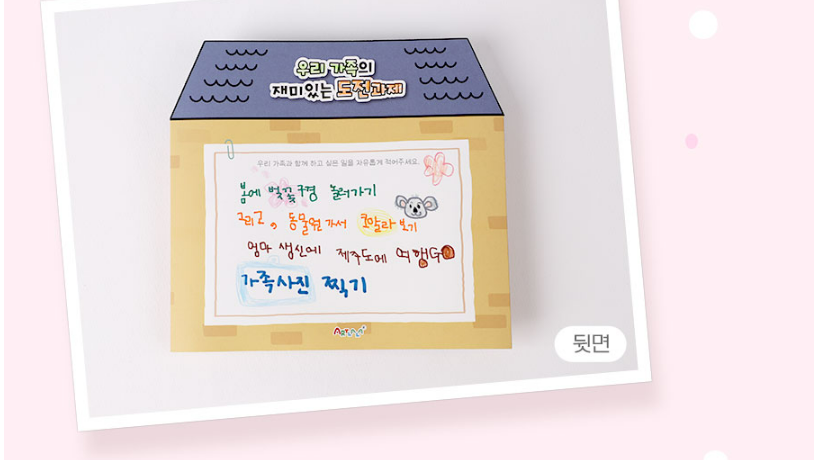 우리 가족의
재미있는 도전과제
우리 가족과 함께 하고 싶은 일을 자유롭게 적어주세요.
봄에 벚꽃 구경 놀러가기
그리고, 동물원 가서 코알라 보기
엄마 생신에 제주도에 여행GO
가족사진 찍기
뒷면